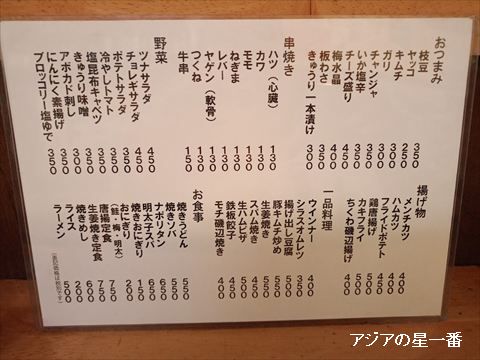 おつまみ
枝豆 350
ヤッコ 250
キムチ 300
ガリ 200
チャンジャ 350
いか塩辛 350
チーズ盛り 450
梅水晶 400
板わさ 300
きゅうり一本漬け 300
串焼き
ハツ（心臓） 130
カワ 130
モモ 130
ねぎま 130
レバー 130
ヤゲン（軟骨） 130
つくね 130
牛串 150
野菜
ツナサラダ 450
チョレギサラダ 450
ポテトサラダ 350
冷やしトマト 300
塩昆布キャベツ 300
きゅうり味噌 300
アボカド刺し 350
にんにく素揚げ 350
ブロッコリー塩ゆで 350
揚げ物
メンチカツ 400
ハムカツ 400
フライドポテト 400
鶏唐揚げ 400
カキフライ
ちくわ磯辺揚げ 400
一品料理
ウインナー 400
シラスオムレツ 350
揚げ出し豆腐
豚キムチ炒め 500
生姜焼き 500
スパム焼き
生ハムピザ 500
鉄板餃子 400
モチ磯辺焼き 400
お食事
焼きうどん 550
焼きソバ 550
ナポリタン 650
明太子スパ 650
焼きおにぎり 150
おにぎり 200
（鮭・梅・明太）
唐揚定食 750
生姜焼き定食 750
焼きめし 600
ライス 200
ラーメン 500
（表記価格は税別です）
アジアの星一番